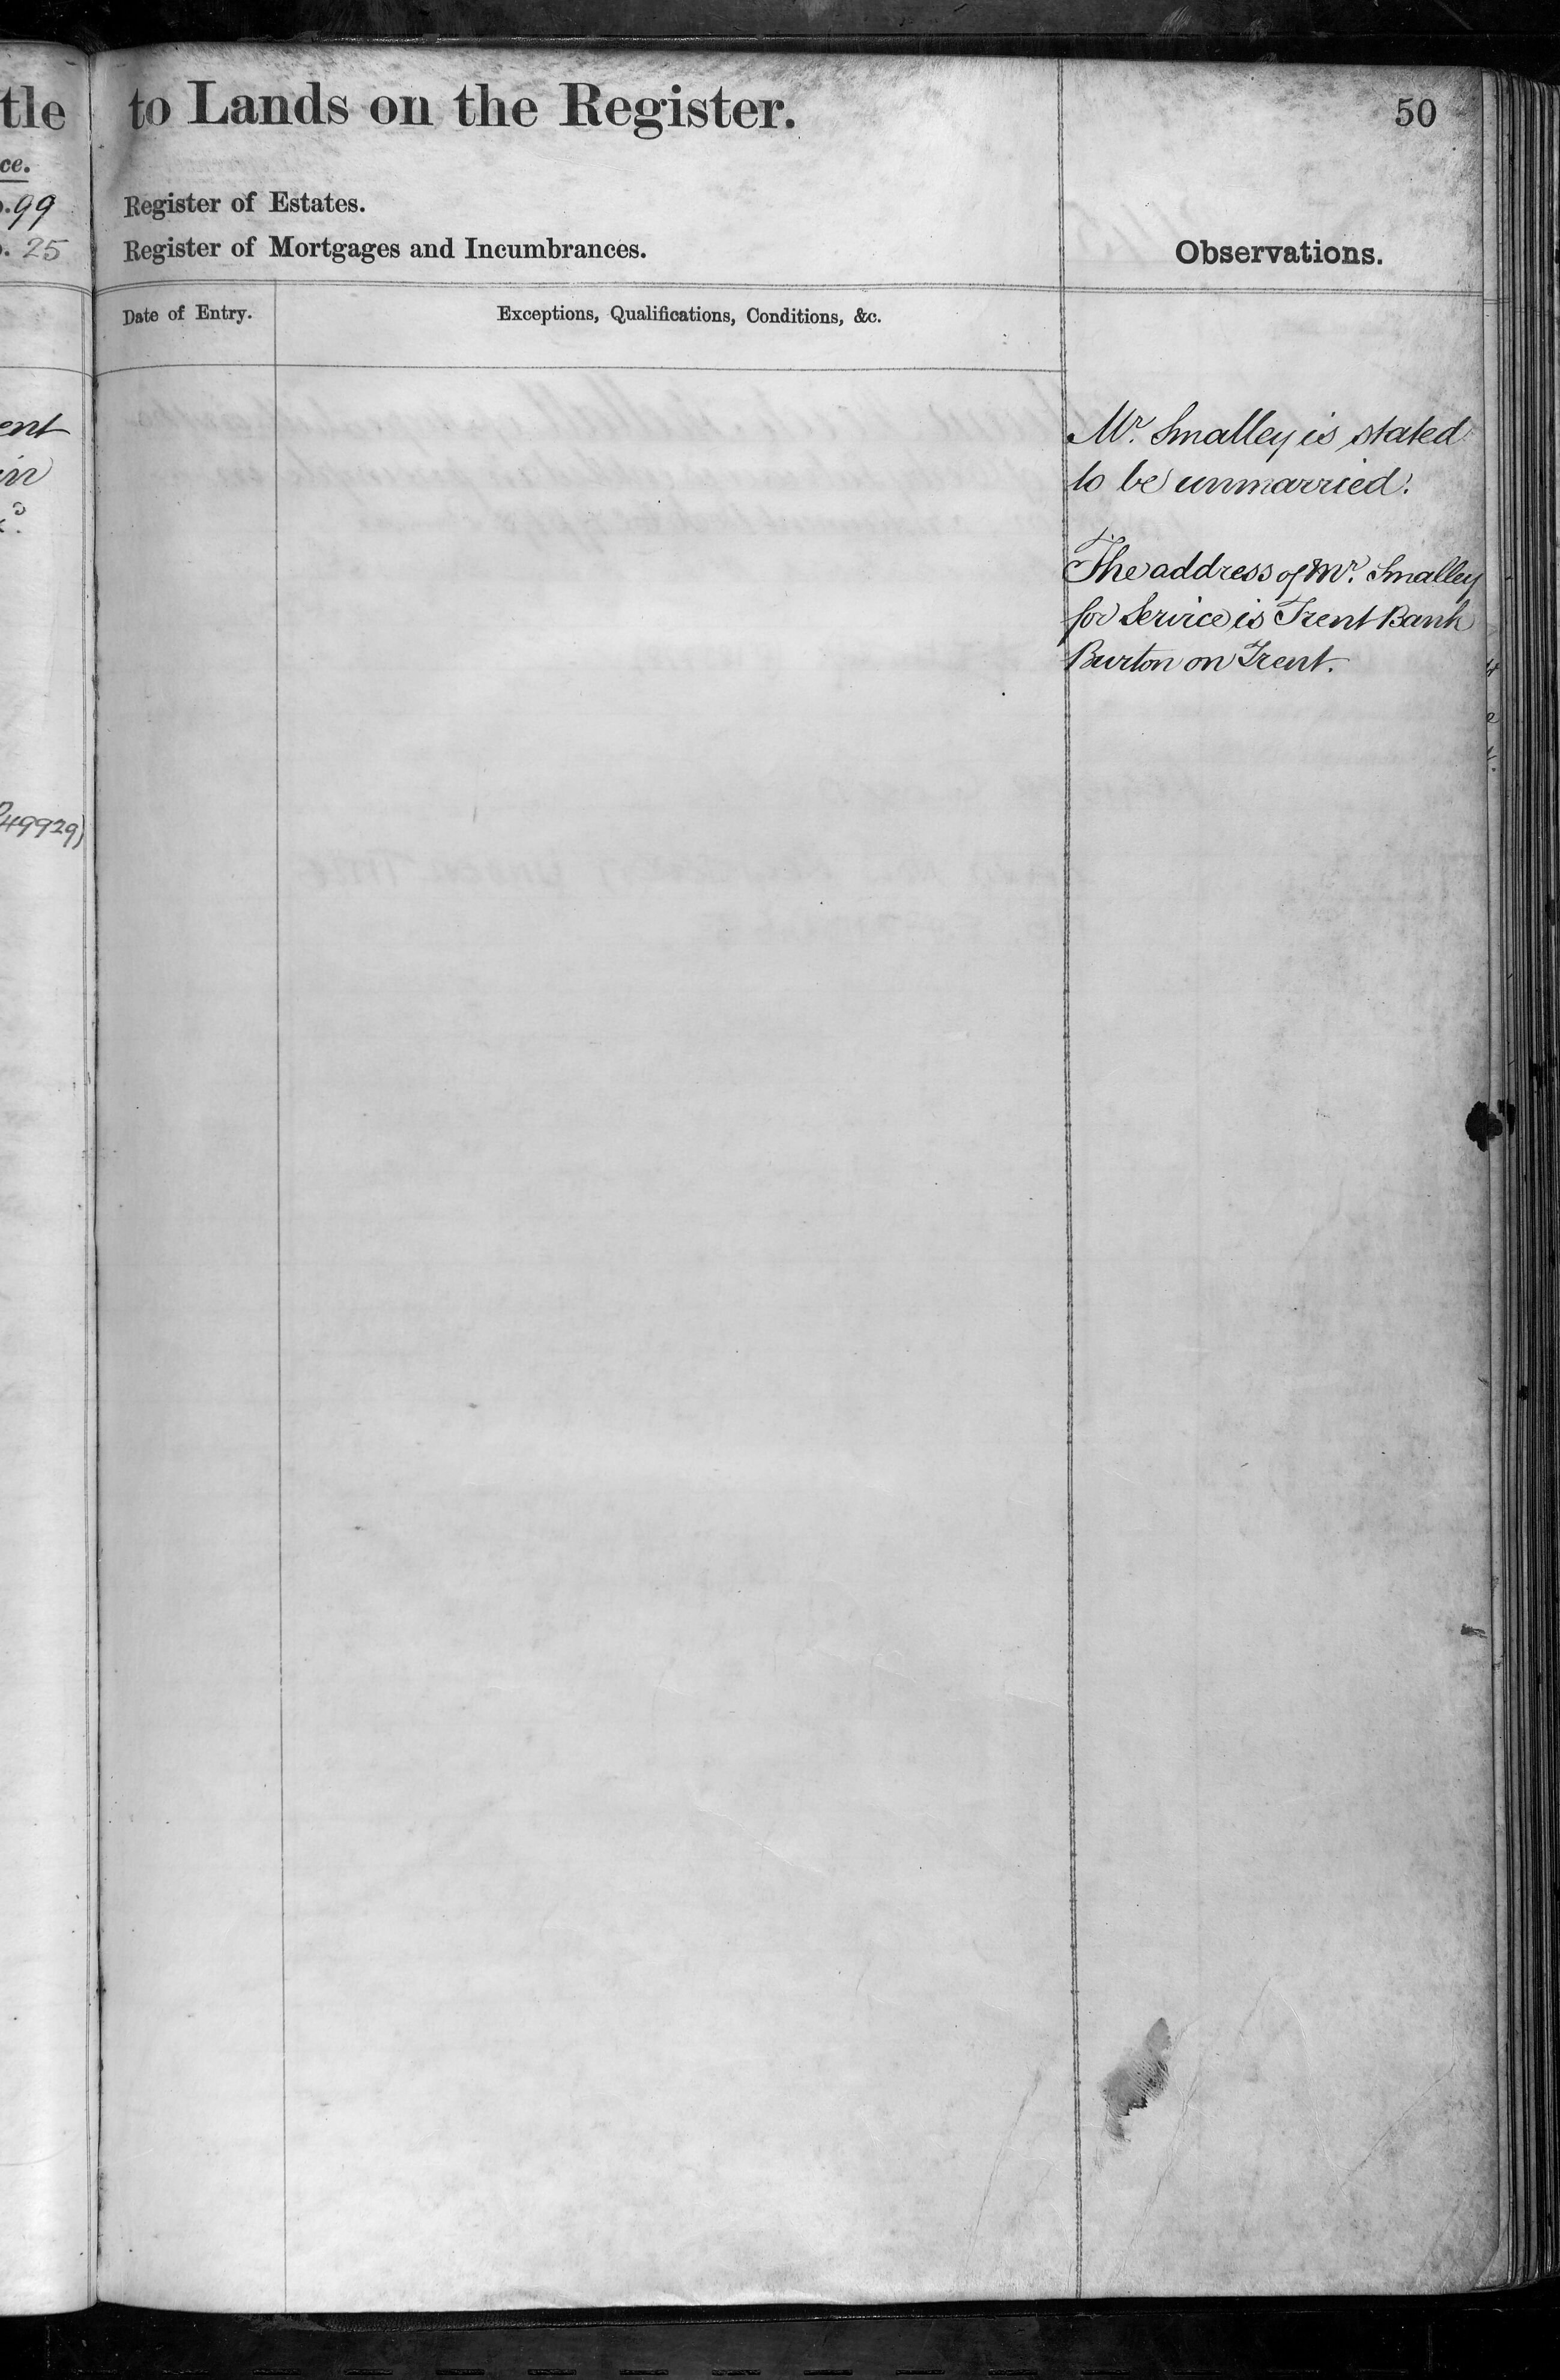 tle
ce.
.99
. 25
ent
49929)
to Lands on the Register.
50
Register of Estates.
Register of Mortgages and Incumbrances.
Observations.
Date of Entry.
Exceptions, Qualifications, Conditions, &c.
Mr. Smalley is stated
to be unmarried.
The address of Mr. Smalley
for Service is Trent Bank
Burton on Trent.